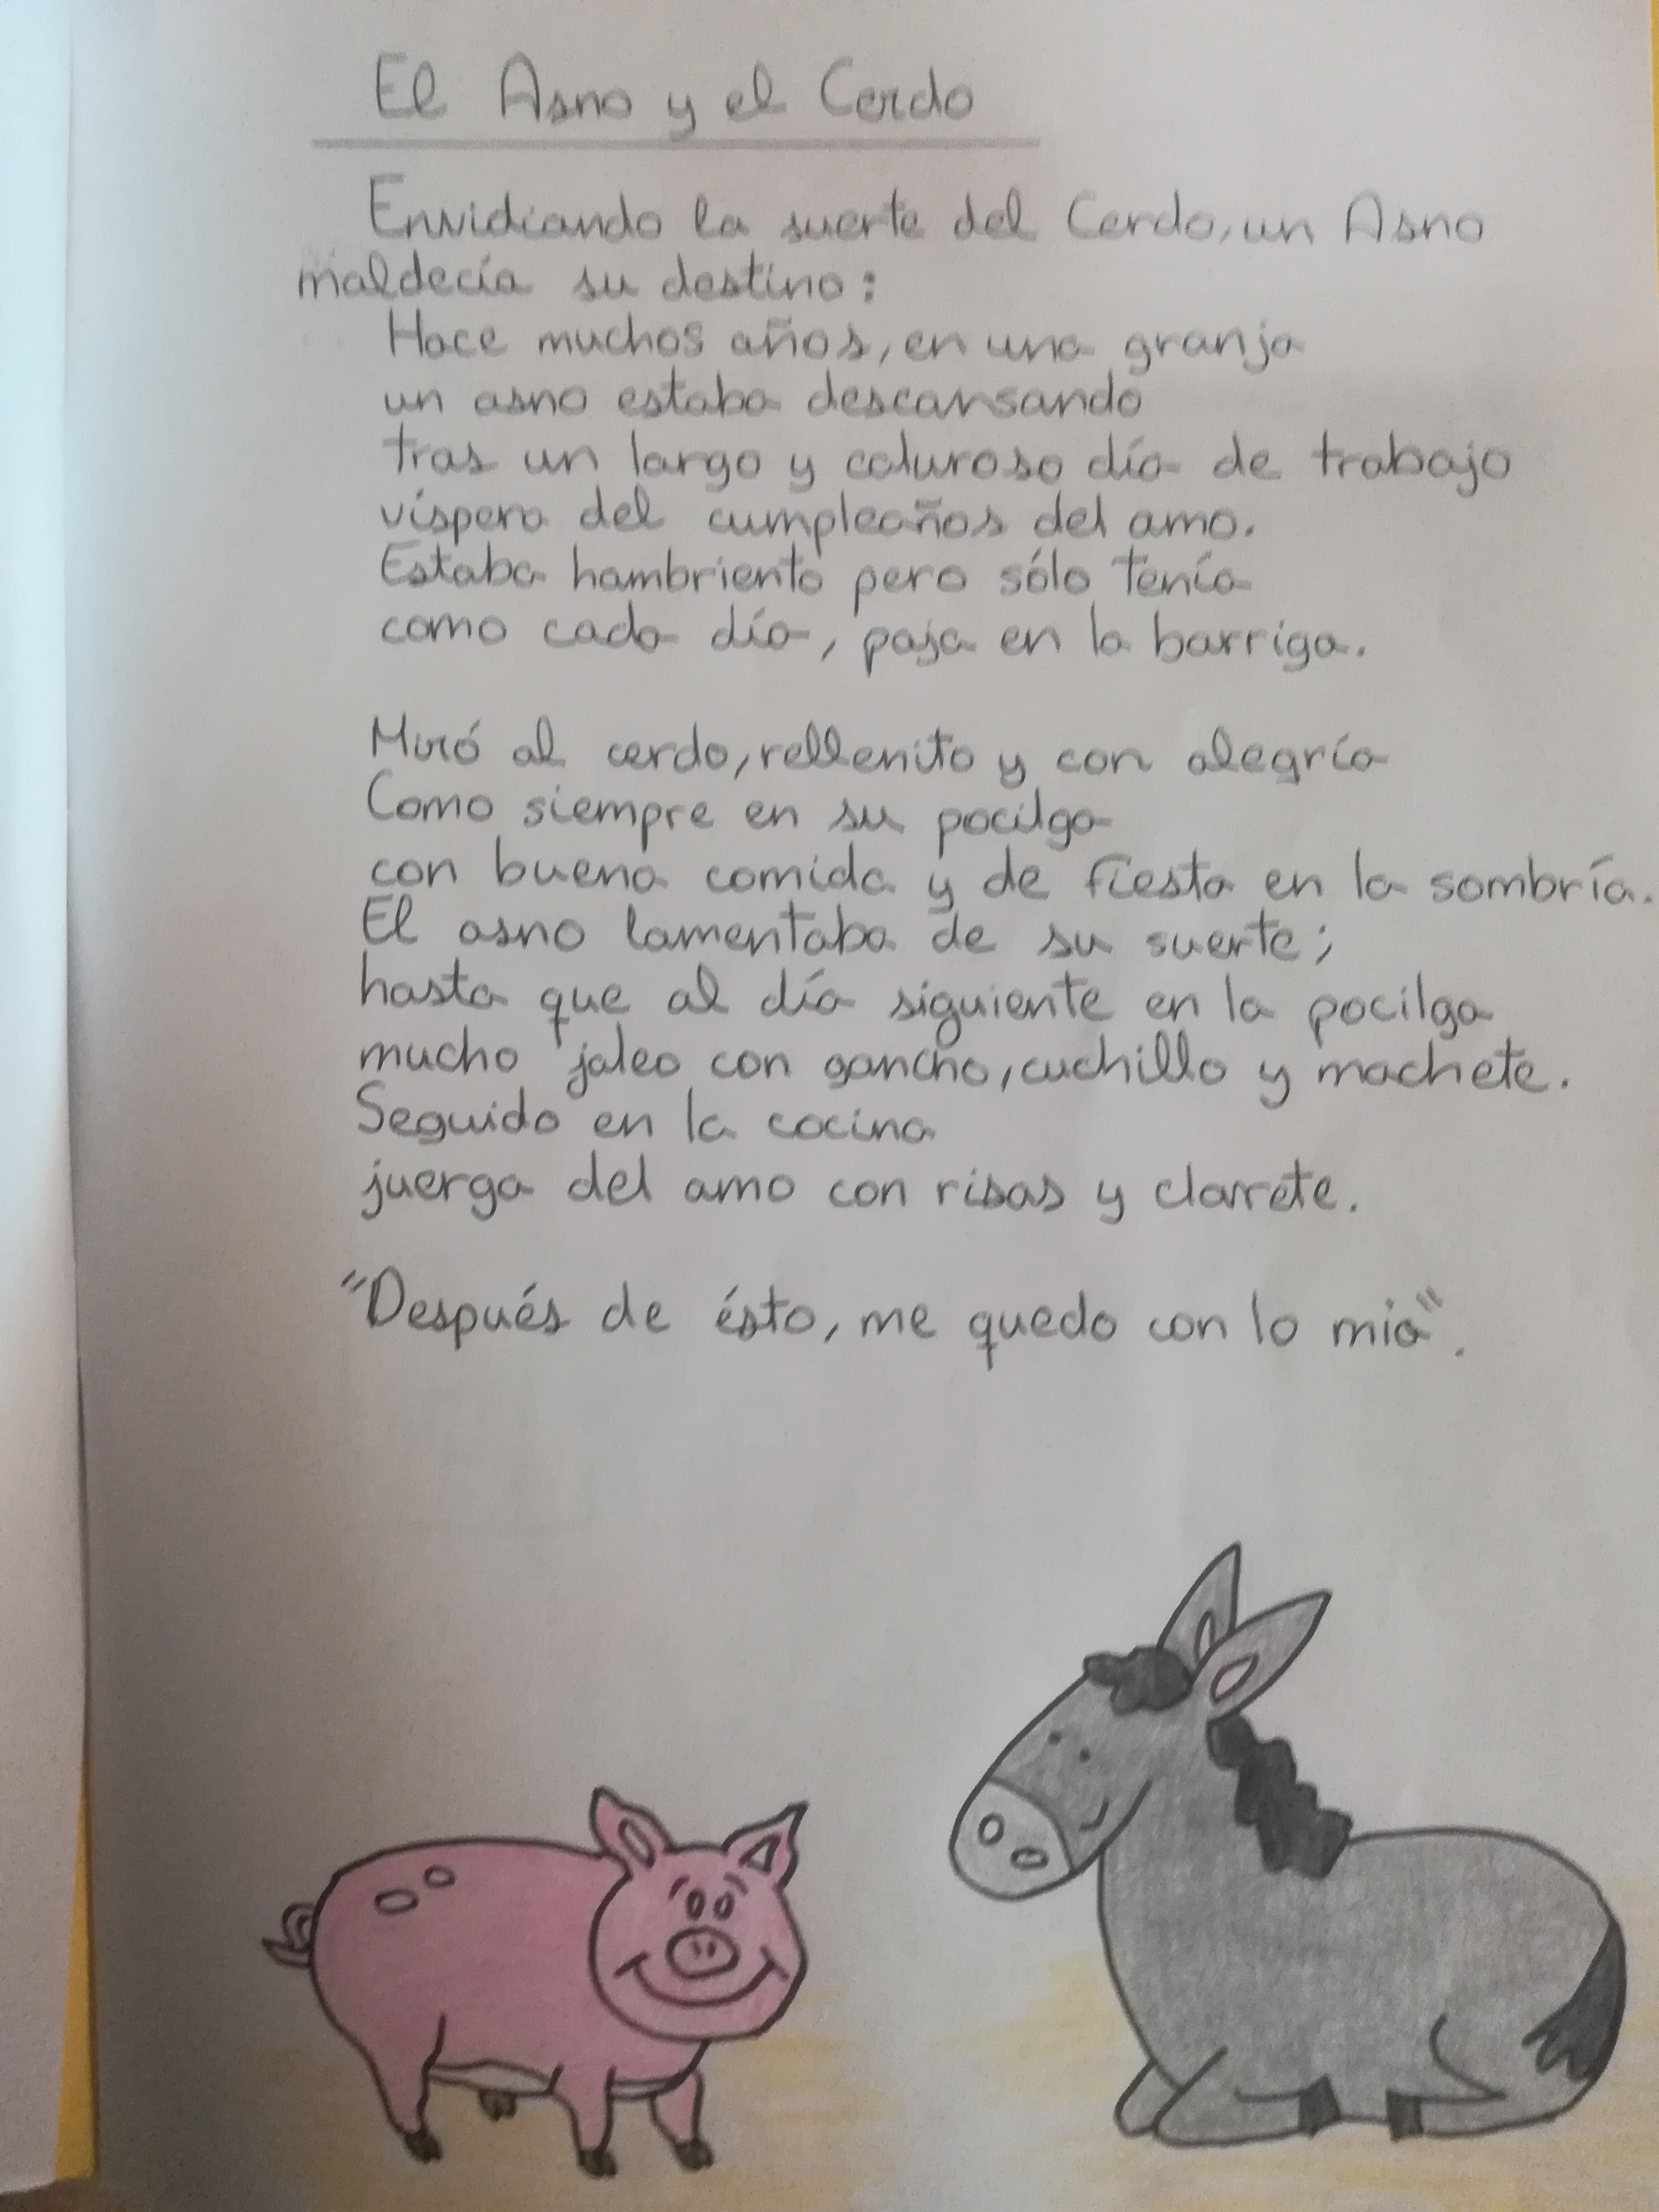 El Asno y el Cerdo
Envidiando la suerte del Cerdo, un Asno
maldecía su destino:
Hace muchos años, en una granja
un asno estaba descansando
tras un largo y caluroso día de trabajo
víspera del cumpleaños del amo.
Estaba hambriento pero sólo tenía
como cada día, paja en la barriga.
Miró al cerdo, rellenito y con alegría
Como siempre en su pocilga
con buena comida y de fiesta en la sombría.
El asno lamentaba de su suerte;
hasta que al día siguiente en la pocilga
mucho jaleo con gancho, cuchillo y machete.
Seguido en la cocina
juerga del amo con risas y clarete.
"Después de ésto, me quedo con lo mio".